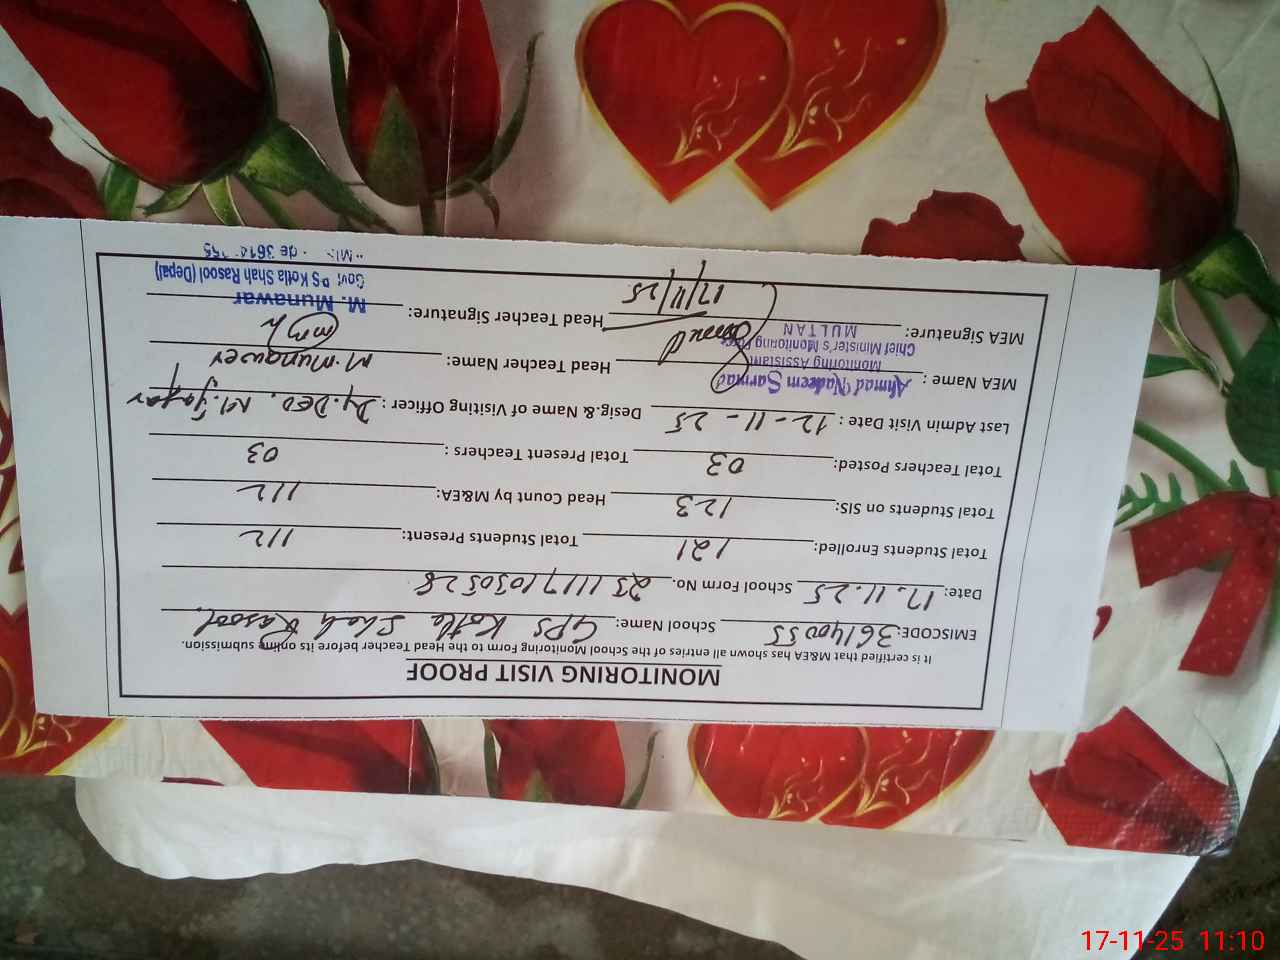 MONITORING VISIT PROOF
It is certified that M&EA has shown all entries of the School Monitoring Form to the Head Teacher before its online submission.
EMISCODE: 36140055 School Name: GPS Kotla Shah Rasool
Date: 17.11.25 School Form No. 25111171030528
Total Students Enrolled: 121 Total Students Present: 112
Total Students on SIS: 123 Head Count by M&EA: 112
Total Teachers Posted: 03 Total Present Teachers : 03
Last Admin Visit Date : 12-11-25 Desig.& Name of Visiting Officer : Dy.DEO. M.
MEA Name : Ahmad Nadeem Sarmad Head Teacher Name: M. Munawer
Monitoring Assistant
Chief Minister's Monitoring Force
MULTAN
MEA Signature: 17/11/25 Head Teacher Signature:
M. Munawar
Govt PS Kotla Shah Rasool (Depal)
17-11-25 11:10